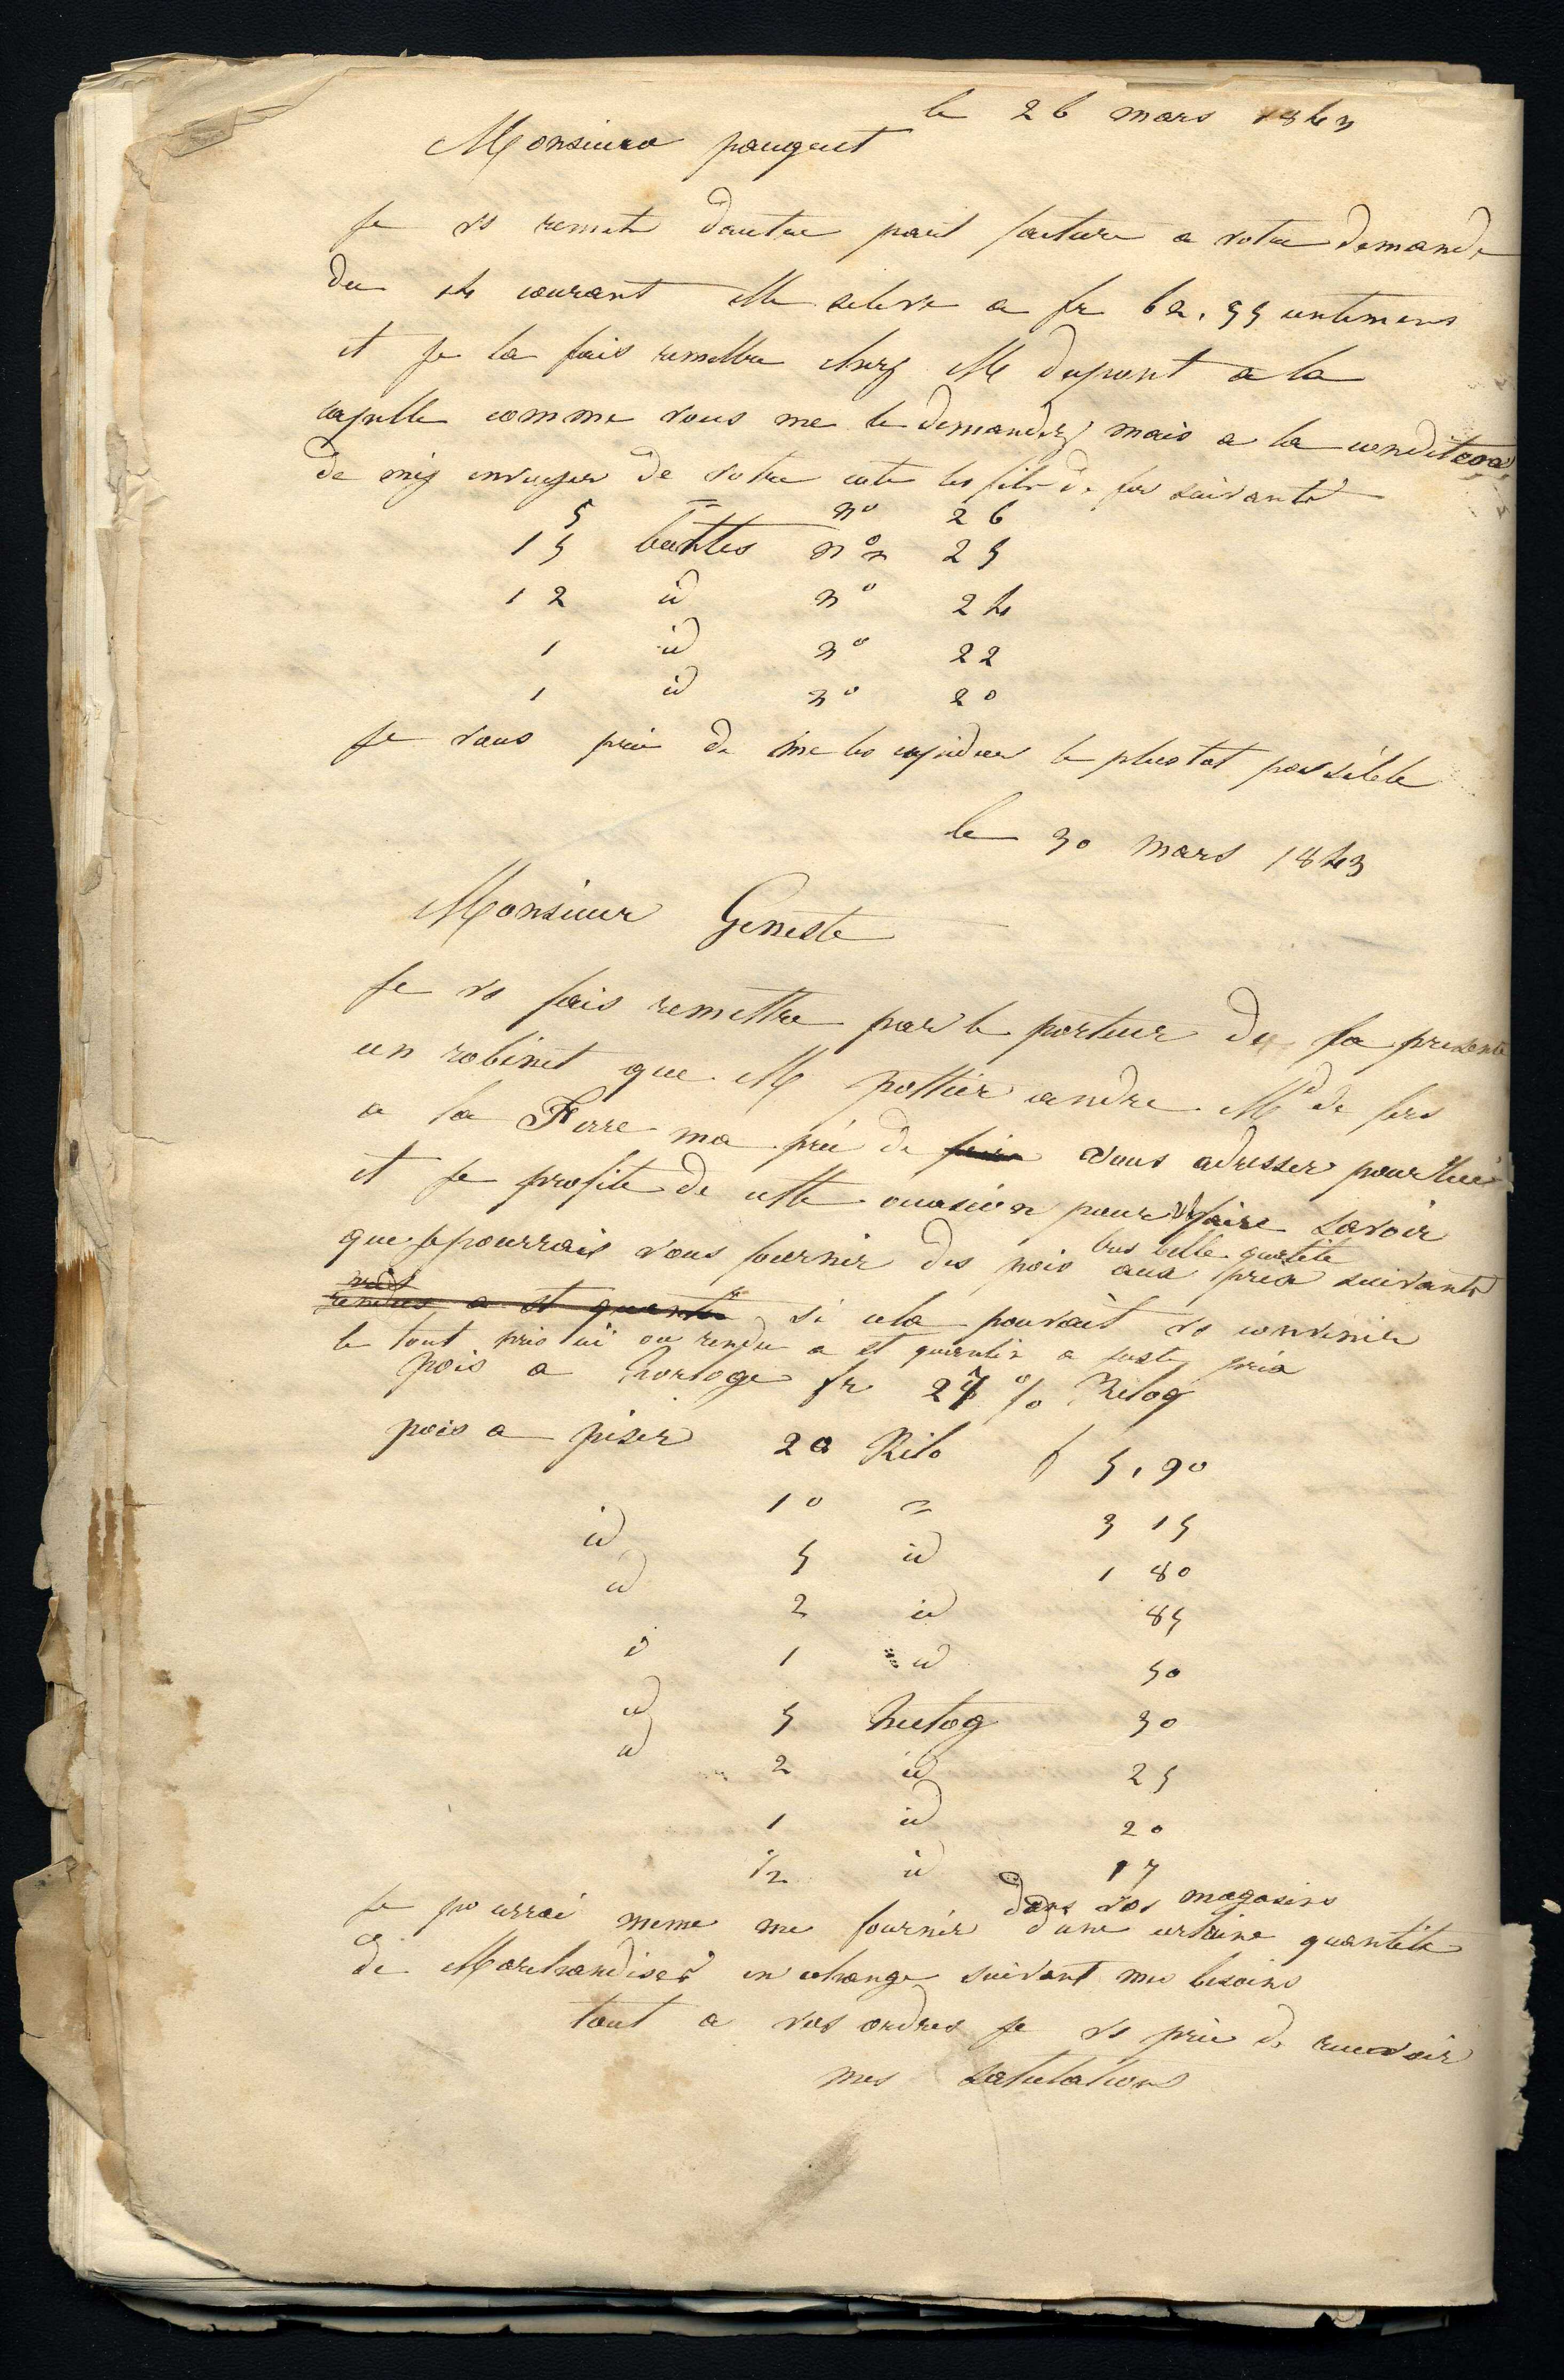 le 26 mars 1843
Monsieur paugeut
Je vs remets dautre part facture a votre demande
du 14 courant elle seleve a fr 62,55 centimens
et je la fais remettre chez M dupont a la
capelle comme vous me le demandez mais a la condition
de envoyer de votre cote les fils de fer suivants
5 = no 26
15 bottes no 25
12 id no 24
1 id no 22
1 id no 20
Je vous prie de me les expedier le plustot possible
le 30 mars 1843
Monsieur Geneste
Je vs fais remettre par le porteur de la presente
un robinet que M pottier andre Md de fers
a la Ferre ma prié de faire vous adresser pour lui
et je profite de cette occasion pour vs faire savoir
que je pourrais vous fournir des pois tres belle qualite aux prix suivants
rendus a st quentin si cela pouvait vs convenir
le tout pris ici ou rendu a st quentin a juste prix
pois a horloge fr 27 % Kilog
pois a peser 20 Kilo f 5,90
id 10 = 3 15
id 5 id 1 80
id 2 id 85
id 1 id 50
id 5 hectog 30
id 2 id 25
1 id 20
1/2 id 17
Je pourrai meme me fournir dans vos magasins dune certaine quantité
de Marchandises en echange suivant mes besoins
tout a vos ordres je vs prie de recevoir
mes salutations